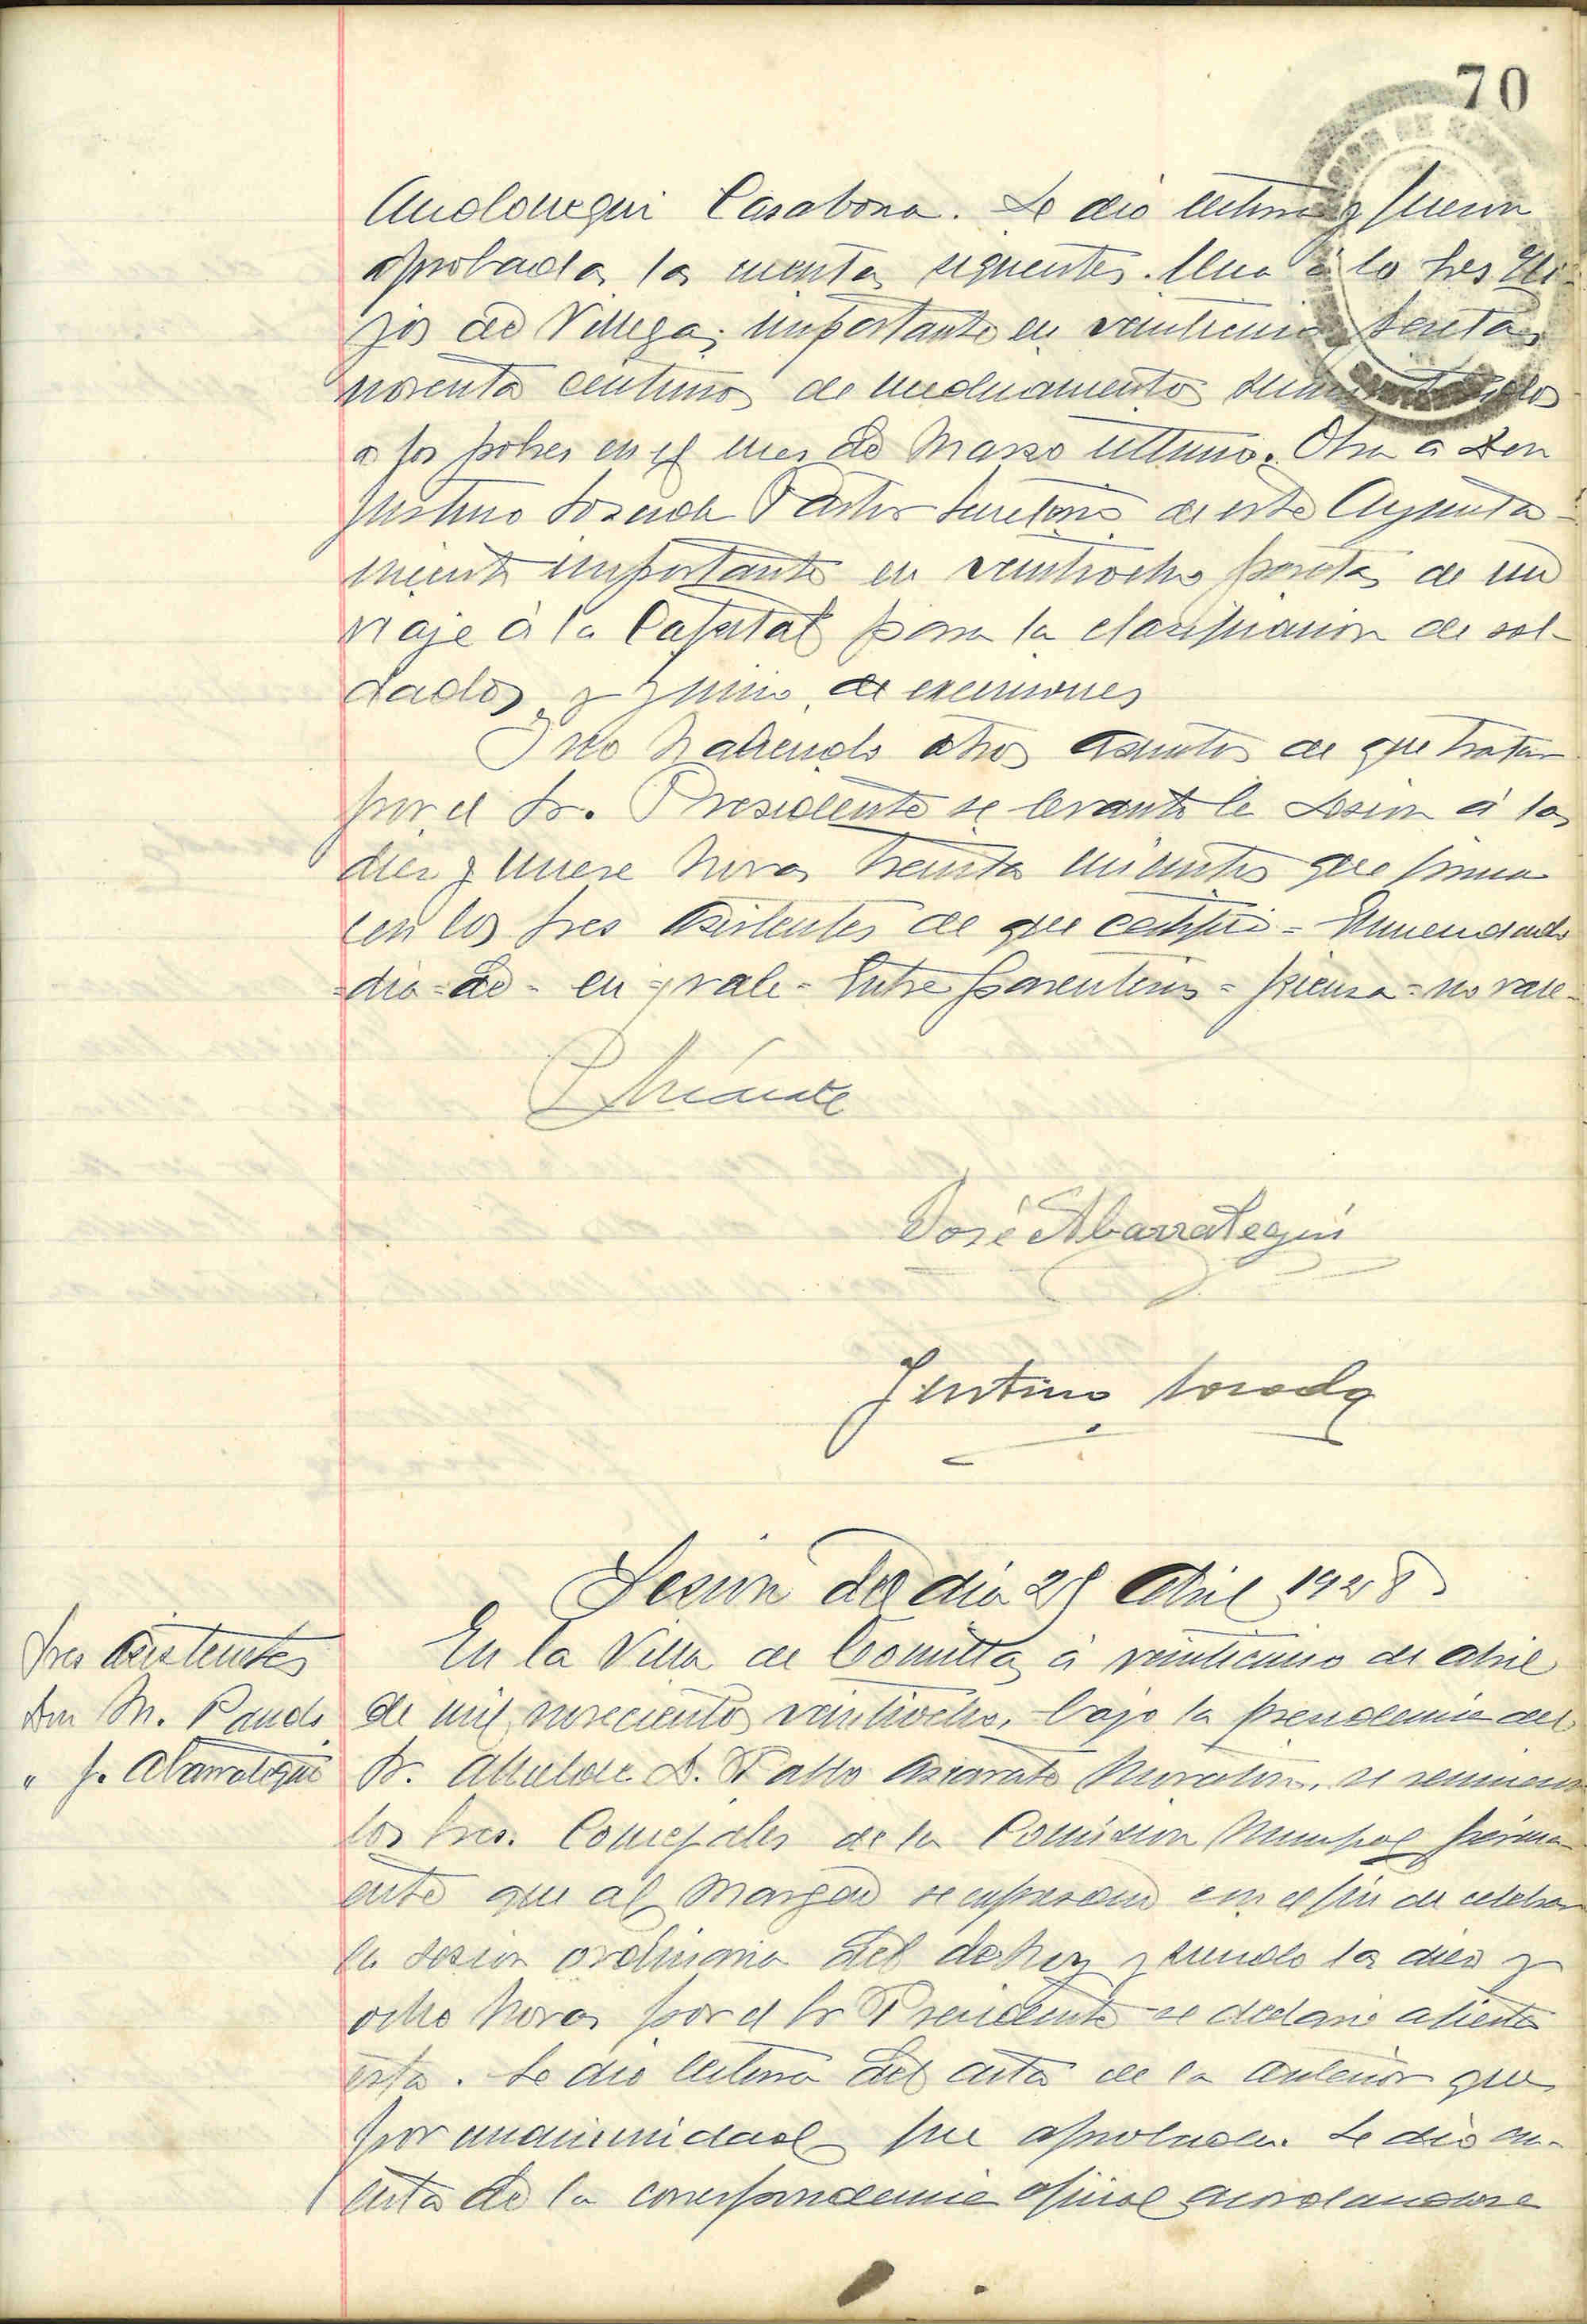 70
Andonegui Casabona. Se dio lectura y fueron
aprobadas las cuentas siguientes. Una á los Sres Hi-
jos de Villegas, importante en veinticinco pesetas
noventa céntimos de medicamentos suministrados
a los pobres en el mes de Marzo último. Otra a Don
Justino Lozada Pastor Secretario de este Ayunta-
miento importante en veintiocho pesetas de un
viaje á la Capital para la clasificacion de sol-
dados y juicio de exenciones
Y no habiendo otros asuntos de que tratar
por el Sr. Presidente se levantó la Sesion á las
diez y nueve horas treinta minutos que firma
con los Sres Asistentes de que certifico = Enmendado
=dio=de= en= vale= Entre parentesis = = no vale=
José Abarrategui
Justino
Sesion del dia 25 Abril 1928
Sres Asistentes
Don M. Pando
" J. Abarrategui
En la Villa de Comillas á veinticinco de abril
de mil novecientos veintiocho, bajo la presidencia del
Sr. Alcalde D. Pablo se reunieron
los Sres. Concejales de la Comision Municipal perma-
ente que al Margen se expresan con el fin de celebrar
la sesion ordinaria del de hoy y siendo las diez y
ocho horas por el Sr Presidente se declaró abierta
esta. Se dio lectura del acta de la anterior que
por unanimidad fue aprobada. Se dio cu-
enta de la correspondencia oficial acordandose